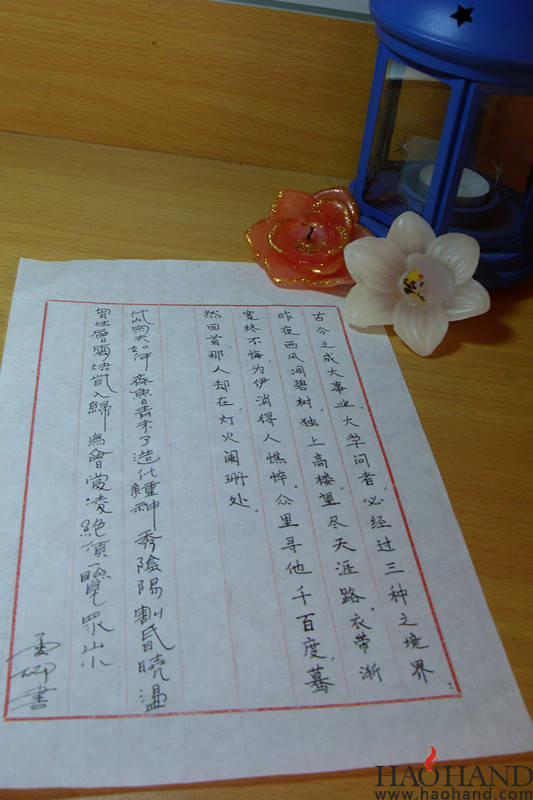 古今之成大事业、大学问者,必经过三种之境界:
昨夜西风凋碧树,独上高楼,望尽天涯路。衣带渐
宽终不悔,为伊消得人憔悴。众里寻他千百度,蓦
然回首,那人却在,灯火阑珊处。
岱宗夫如何齊魯青未了造化鍾神秀陰陽割昏曉盪
胸生層雲決眥入歸鳥會當凌絕頂一覽眾山小
書
HAOHAND
www.haohand.com